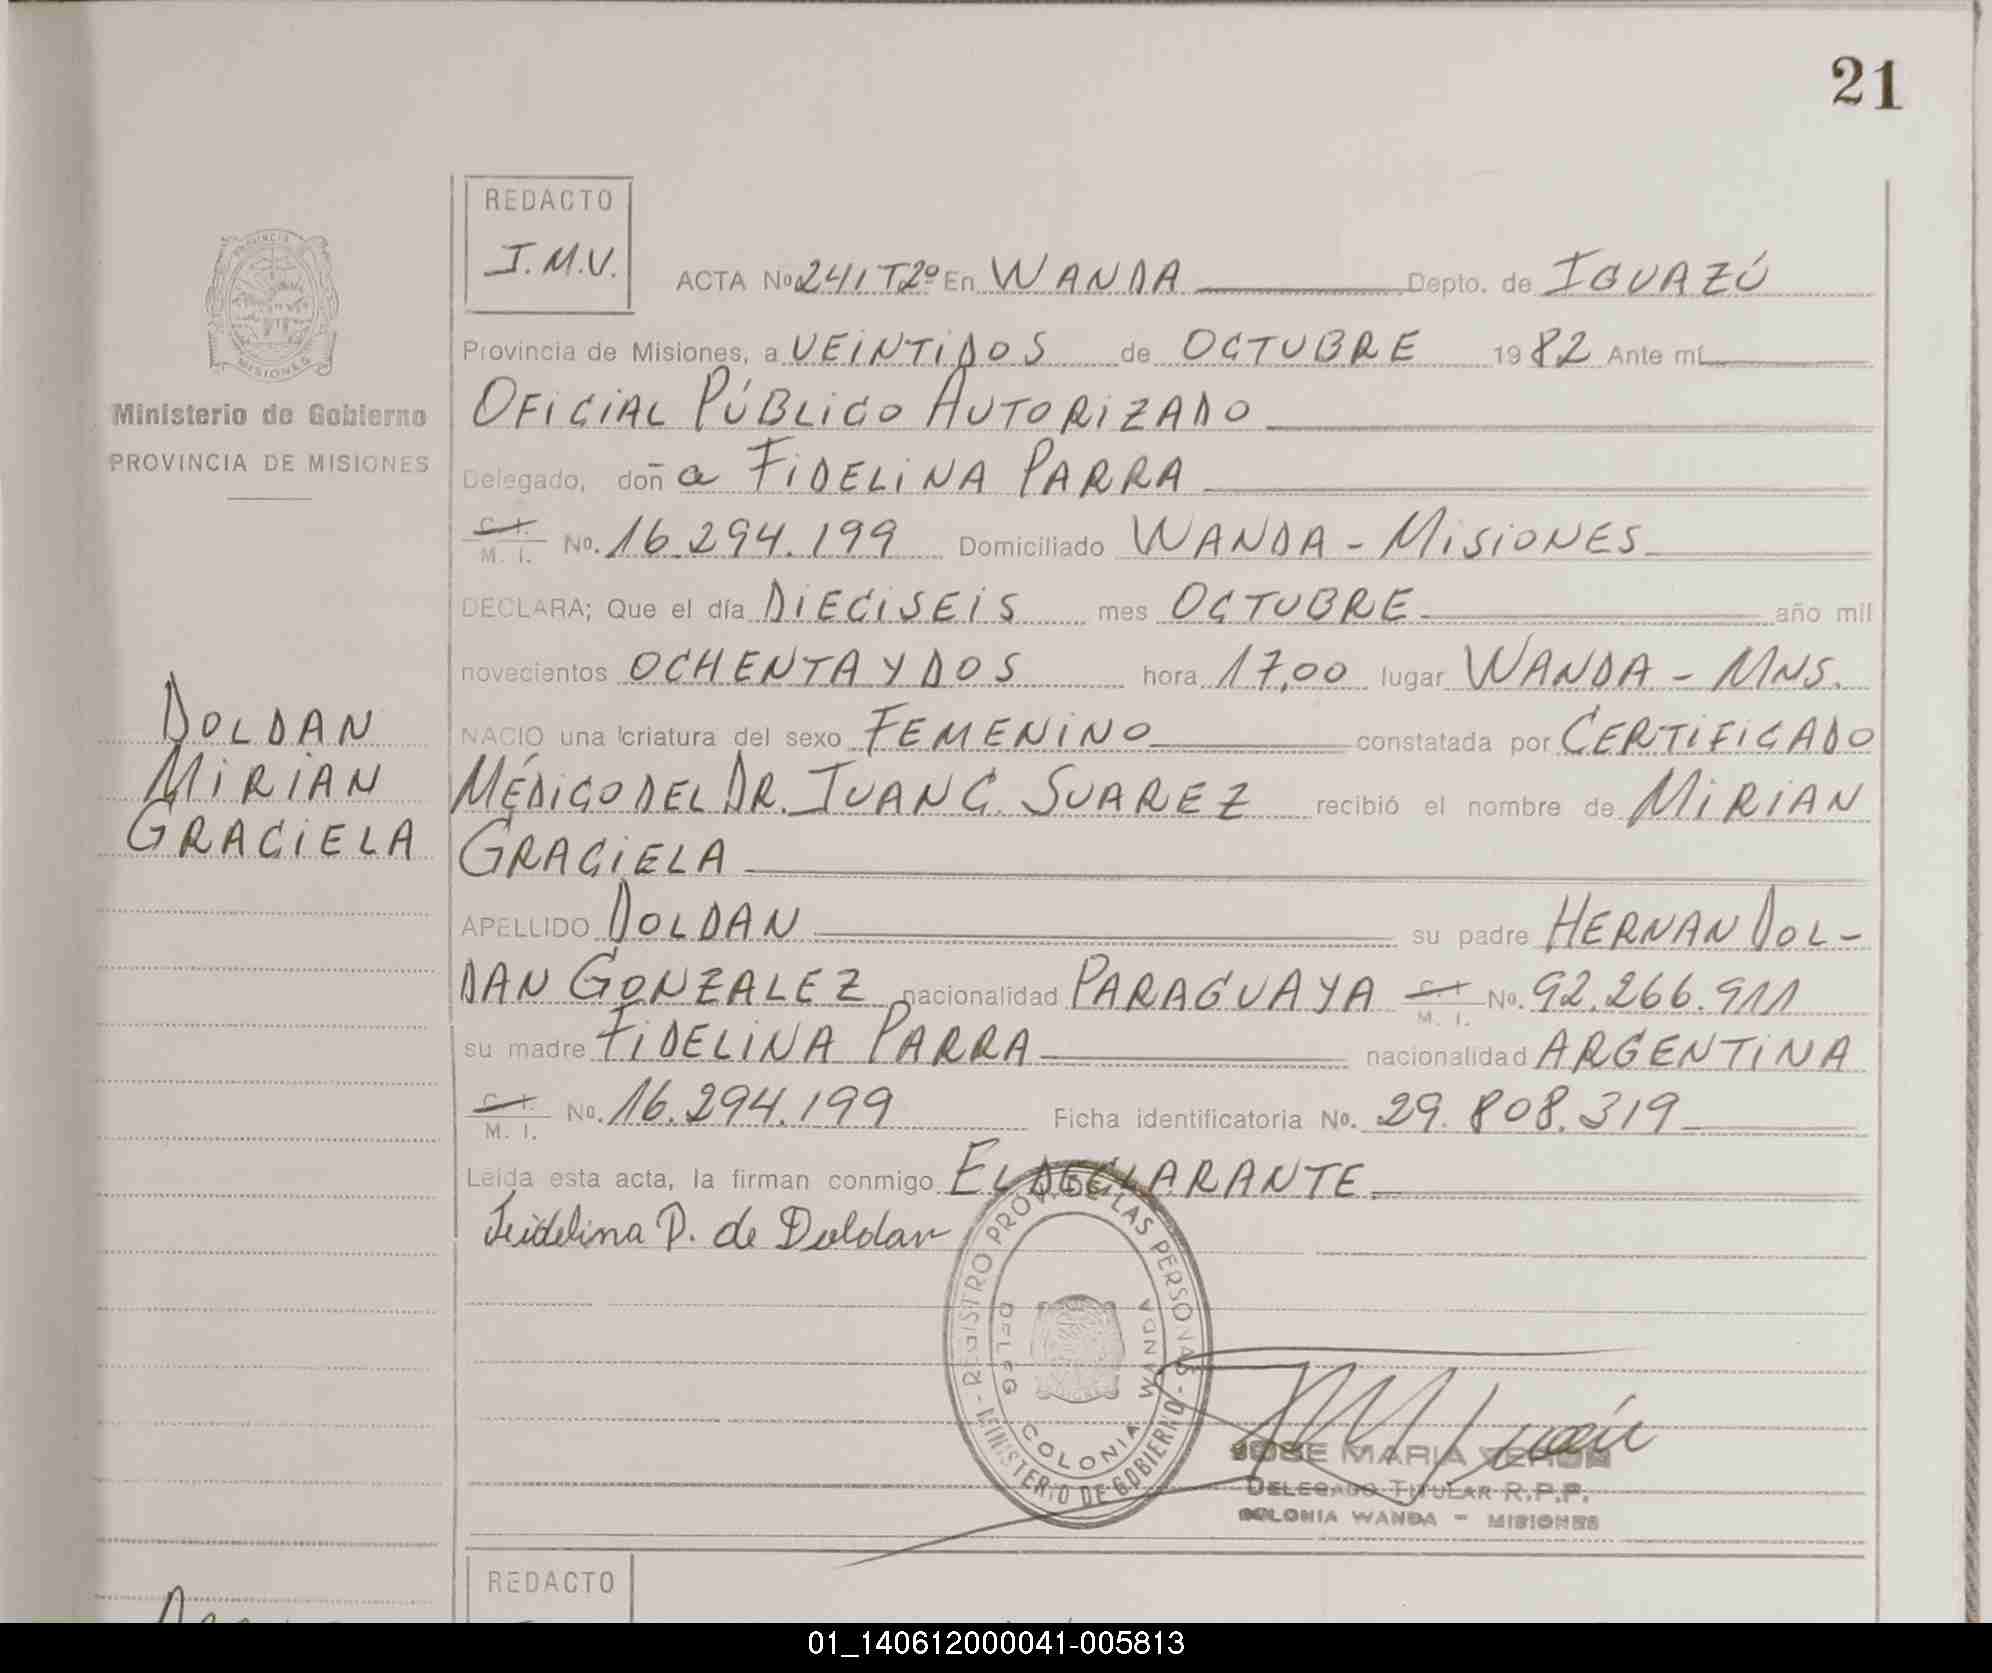 21
REDACTO
J.M.V.
ACTA No 241 T2º En WANDA Depto. de IGUAZÚ
Provincia de Misiones, a VEINTIDOS de OCTUBRE 1982 Ante mí
OFICIAL PÚBLICO AUTORIZADO
Delegado, doña FIDELINA PARRA
C. I.
M. I. No. 16.294.199 Domiciliado WANDA - MISIONES
DECLARA; Que el día DIECISEIS mes OCTUBRE año mil
novecientos OCHENTA Y DOS hora 17,00 lugar WANDA - MNS.
NACIO una criatura del sexo FEMENINO constatada por CERTIFICADO
MÉDICO DEL DR. JUAN C. SUAREZ recibió el nombre de MIRIAN
GRACIELA
APELLIDO DOLDAN su padre HERNAN DOL-
DAN GONZALEZ nacionalidad PARAGUAYA C. I. M. I. No. 92.266.911
su madre FIDELINA PARRA nacionalidad ARGENTINA
C. I.
M. I. No. 16.294.199 Ficha identificatoria No. 29.808.319
Leída esta acta, la firman conmigo EL DECLARANTE
Feidelina P. de Doldan
PROVINCIA
MISIONES
Ministerio de Gobierno
PROVINCIA DE MISIONES
DOLDAN
MIRIAN
GRACIELA
REGISTRO PROV. DE LAS PERSONAS - MINISTERIO DE GOBIERNO -
DELEG COLONIA WANDA
JOSE MARIA VERON
DELEGADO TITULAR R.P.P.
COLONIA WANDA - MISIONES
REDACTO
01_140612000041-005813